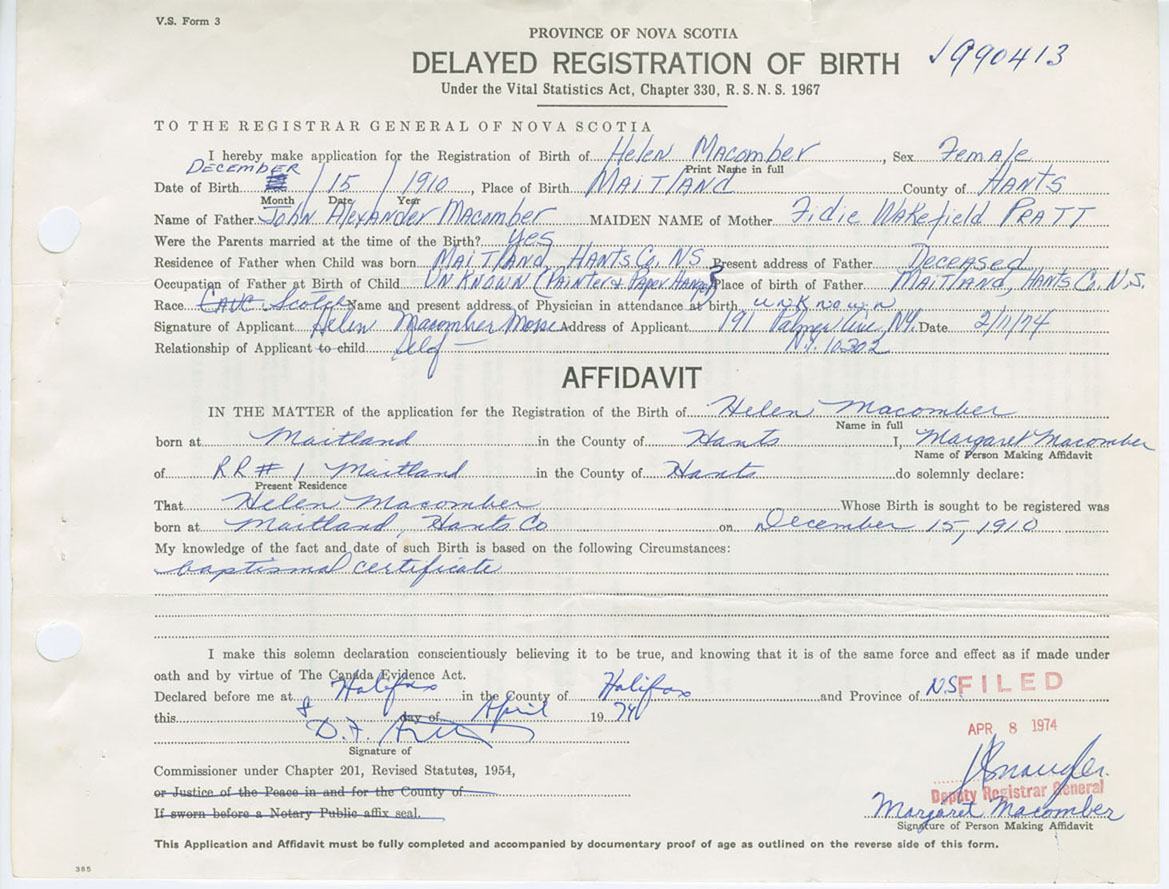 V.S. Form 3
PROVINCE OF NOVA SCOTIA
DELAYED REGISTRATION OF BIRTH 990413
Under the Vital Statistics Act, Chapter 330, R. S. N. S. 1967
TO THE REGISTRAR GENERAL OF NOVA SCOTIA
I hereby make application for the Registration of Birth of Helen Macomber, Sex Female
Print Name in full
DECEMBER
Date of Birth / 15 / 1910, Place of Birth MAITLAND County of HANTS
Month Date Year
Name of Father John Alexander Macomber MAIDEN NAME of Mother Fidie Wakefield PRATT
Were the Parents married at the time of the Birth? Yes
Residence of Father when Child was born MAITLAND, HANTS Co. NS Present address of Father Deceased
Occupation of Father at Birth of Child UNKNOWN (Painter & Paper Hanger) Place of birth of Father MAITLAND, HANTS Co. N.S.
Race Cauc Scotch Name and present address of Physician in attendance at birth unknown
Signature of Applicant Helen Macomber Mosse Address of Applicant 191 Palmer Ave, NY. Date 2/11/74
Relationship of Applicant to child Self N.Y. 10302
AFFIDAVIT
IN THE MATTER of the application for the Registration of the Birth of Helen Macomber
Name in full
born at Maitland in the County of Hants I, Margaret Macomber
Name of Person Making Affidavit
of RR # 1 Maitland in the County of Hants do solemnly declare:
Present Residence
That Helen Macomber Whose Birth is sought to be registered was
born at Maitland, Hants Co on December 15, 1910
My knowledge of the fact and date of such Birth is based on the following Circumstances:
baptismal certificate
I make this solemn declaration conscientiously believing it to be true, and knowing that it is of the same force and effect as if made under
oath and by virtue of The Canada Evidence Act.
Declared before me at Halifax in the County of Halifax and Province of N.S.
FILED
this 8 day of April 1974
APR 8 1974
D.F.
Signature of
Commissioner under Chapter 201, Revised Statutes, 1954,
or Justice of the Peace in and for the County of
Deputy Registrar General
If sworn before a Notary Public affix seal.
Margaret Macomber
Signature of Person Making Affidavit
This Application and Affidavit must be fully completed and accompanied by documentary proof of age as outlined on the reverse side of this form.
385